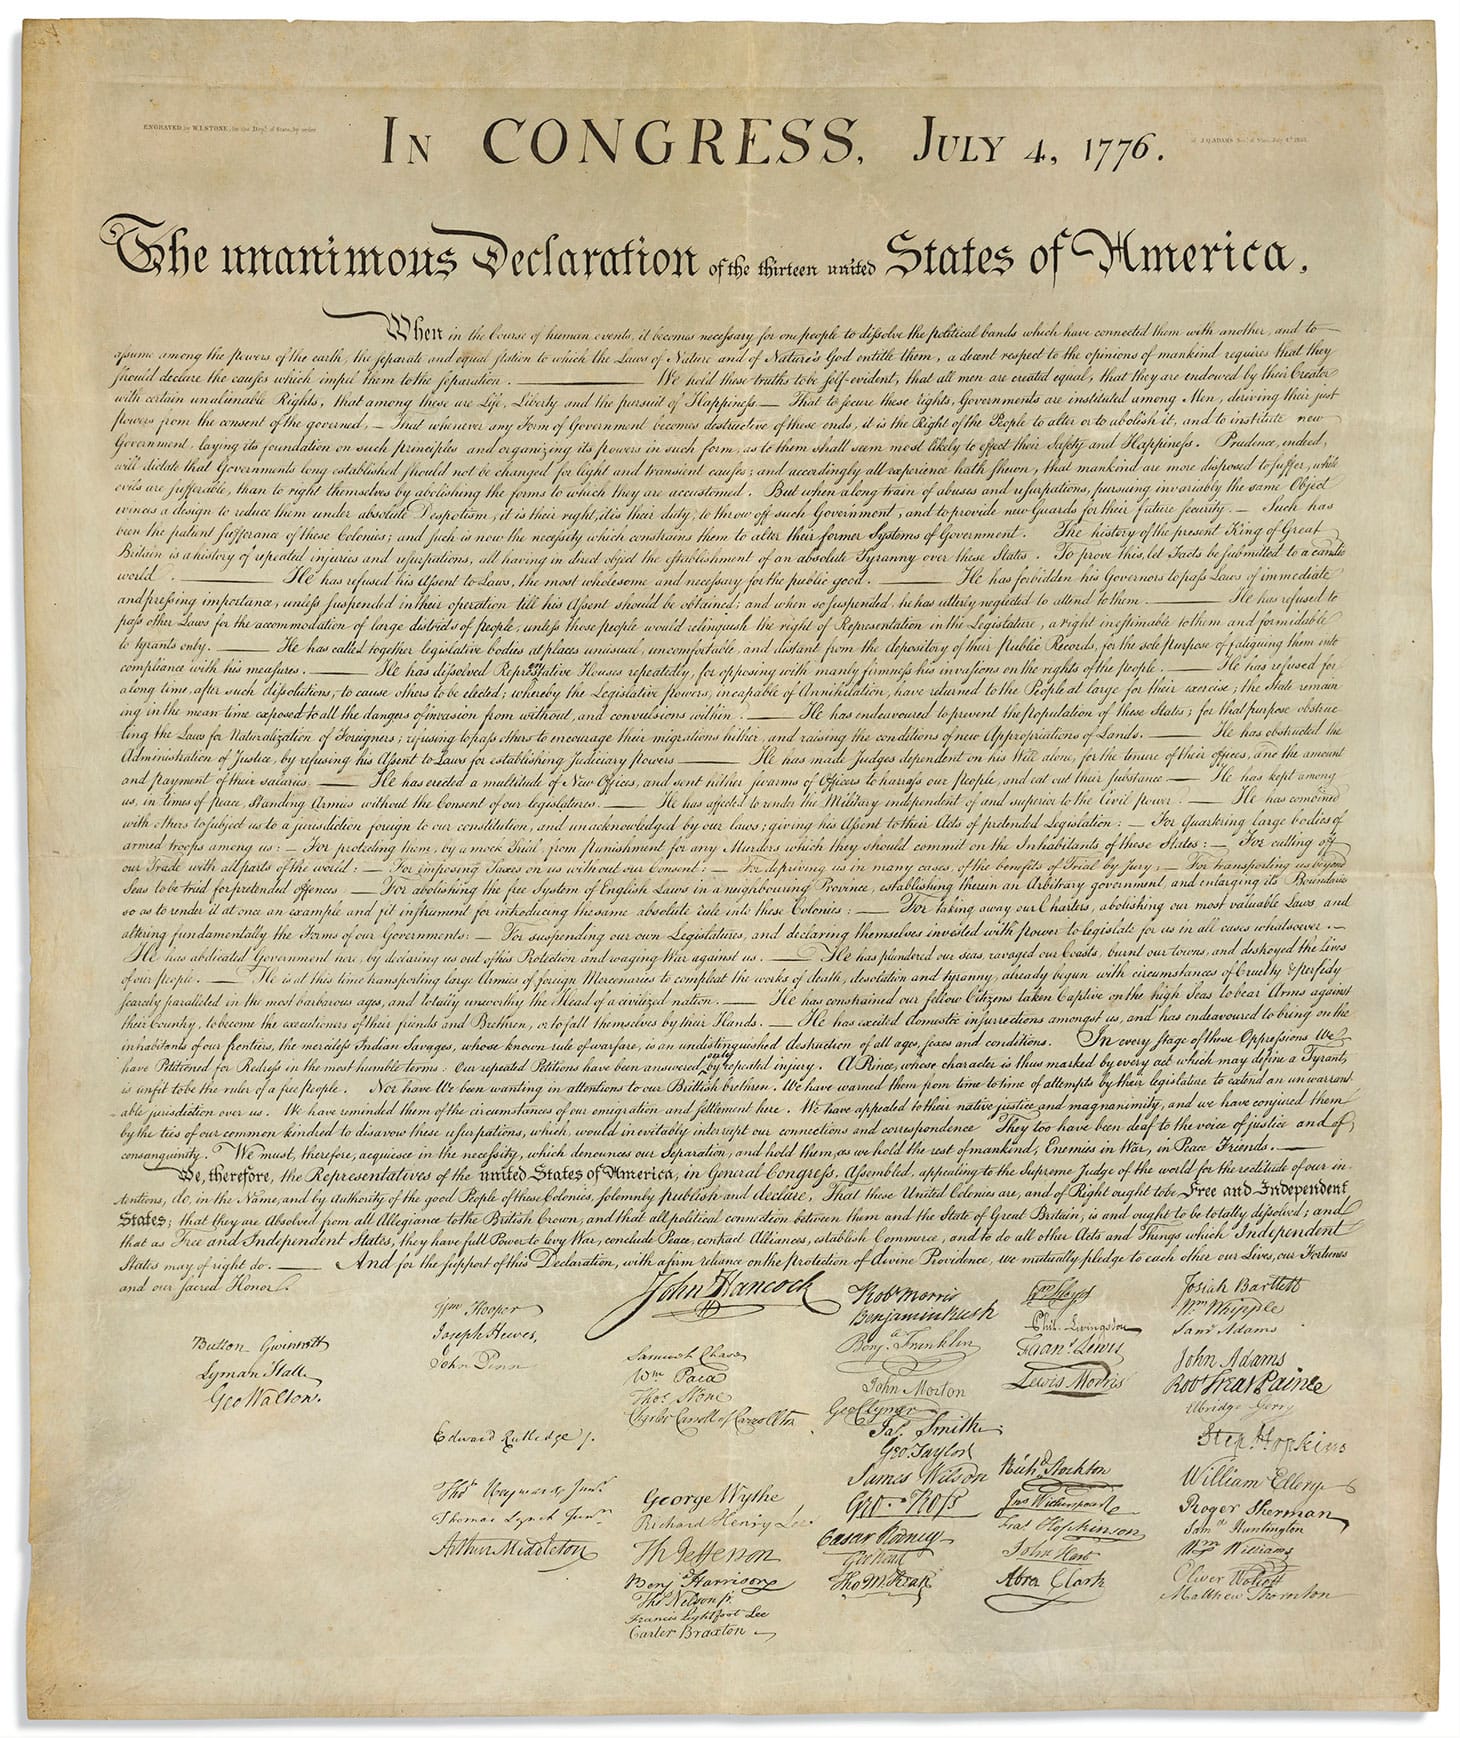 ENGRAVED by W.I.STONE, for the Dept. of State, by order
of J.Q.ADAMS Sec. of State, July 4th 1823.
In CONGRESS, July 4, 1776.
The unanimous Declaration of the thirteen united States of America,
When in the Course of human events, it becomes necessary for one people to dissolve the political bands which have connected them with another, and to
assume among the powers of the earth, the separate and equal station to which the Laws of Nature and of Nature's God entitle them, a decent respect to the opinions of mankind requires that they
should declare the causes which impel them to the separation. — We hold these truths to be self-evident, that all men are created equal, that they are endowed by their Creator
with certain unalienable Rights, that among these are Life, Liberty and the pursuit of Happiness. — That to secure these rights, Governments are instituted among Men, deriving their just
powers from the consent of the governed, — That whenever any Form of Government becomes destructive of these ends, it is the Right of the People to alter or to abolish it, and to institute new
Government, laying its foundation on such principles and organizing its powers in such form, as to them shall seem most likely to effect their Safety and Happiness. Prudence, indeed,
will dictate that Governments long established should not be changed for light and transient causes; and accordingly all experience hath shewn, that mankind are more disposed to suffer, while
evils are sufferable, than to right themselves by abolishing the forms to which they are accustomed. But when a long train of abuses and usurpations, pursuing invariably the same Object
evinces a design to reduce them under absolute Despotism, it is their right, it is their duty, to throw off such Government, and to provide new Guards for their future security. — Such has
been the patient sufferance of these Colonies; and such is now the necessity which constrains them to alter their former Systems of Government. The history of the present King of Great
Britain is a history of repeated injuries and usurpations, all having in direct object the establishment of an absolute Tyranny over these States. To prove this, let Facts be submitted to a candid
world. — He has refused his Assent to Laws, the most wholesome and necessary for the public good. — He has forbidden his Governors to pass Laws of immediate
and pressing importance, unless suspended in their operation till his Assent should be obtained; and when so suspended, he has utterly neglected to attend to them. — He has refused to
pass other Laws for the accommodation of large districts of people, unless those people would relinquish the right of Representation in the Legislature, a right inestimable to them and formidable
to tyrants only. — He has called together legislative bodies at places unusual, uncomfortable, and distant from the depository of their Public Records, for the sole purpose of fatiguing them into
compliance with his measures. — He has dissolved Representative Houses repeatedly, for opposing with manly firmness his invasions on the rights of the people. — He has refused for
a long time, after such dissolutions, to cause others to be elected; whereby the Legislative powers, incapable of Annihilation, have returned to the People at large for their exercise; the State remain
ing in the mean time exposed to all the dangers of invasion from without, and convulsions within. — He has endeavoured to prevent the population of these States; for that purpose obstruc
ting the Laws for Naturalization of Foreigners; refusing to pass others to encourage their migrations hither, and raising the conditions of new Appropriations of Lands. — He has obstructed the
Administration of Justice, by refusing his Assent to Laws for establishing Judiciary powers — He has made Judges dependent on his Will alone, for the tenure of their offices, and the amount
and payment of their salaries. — He has erected a multitude of New Offices, and sent hither swarms of Officers to harrass our people, and eat out their substance — He has kept among
us, in times of peace, Standing Armies without the Consent of our legislatures. — He has affected to render the Military independent of and superior to the Civil power. — He has combined
with others to subject us to a jurisdiction foreign to our constitution, and unacknowledged by our laws; giving his Assent to their Acts of pretended Legislation: — For quartering large bodies of
armed troops among us: — For protecting them, by a mock Trial, from punishment for any Murders which they should commit on the Inhabitants of these States: — For cutting off
our Trade with all parts of the world: — For imposing Taxes on us without our Consent: — For depriving us in many cases, of the benefits of Trial by Jury; — For transporting us beyond
Seas to be tried for pretended offences — For abolishing the free System of English Laws in a neighbouring Province, establishing therein an Arbitrary government, and enlarging its Boundaries
so as to render it at once an example and fit instrument for introducing the same absolute rule into these Colonies: — For taking away our Charters, abolishing our most valuable Laws, and
altering fundamentally the Forms of our Governments: — For suspending our own Legislatures, and declaring themselves invested with power to legislate for us in all cases whatsoever. —
He has abdicated Government here, by declaring us out of his Protection and waging War against us. — He has plundered our seas, ravaged our Coasts, burnt our towns, and destroyed the lives
of our people. — He is at this time transporting large Armies of foreign Mercenaries to compleat the works of death, desolation and tyranny, already begun with circumstances of Cruelty & perfidy
scarcely paralleled in the most barbarous ages, and totally unworthy the Head of a civilized nation. — He has constrained our fellow Citizens taken Captive on the high Seas to bear Arms against
their Country, to become the executioners of their friends and Brethren, or to fall themselves by their Hands. — He has excited domestic insurrections amongst us, and has endeavoured to bring on the
inhabitants of our frontiers, the merciless Indian Savages, whose known rule of warfare, is an undistinguished destruction of all ages, sexes and conditions. In every stage of these Oppressions We
have Petitioned for Redress in the most humble terms: Our repeated Petitions have been answered only by repeated injury. A Prince, whose character is thus marked by every act which may define a Tyrant,
is unfit to be the ruler of a free people. Nor have We been wanting in attentions to our Brittish brethren. We have warned them from time to time of attempts by their legislature to extend an unwarrant
able jurisdiction over us. We have reminded them of the circumstances of our emigration and settlement here. We have appealed to their native justice and magnanimity, and we have conjured them
by the ties of our common kindred to disavow these usurpations, which, would inevitably interrupt our connections and correspondence They too have been deaf to the voice of justice and of
consanguinity. We must, therefore, acquiesce in the necessity, which denounces our Separation, and hold them, as we hold the rest of mankind, Enemies in War, in Peace Friends. —
We, therefore, the Representatives of the united States of America, in General Congress, Assembled, appealing to the Supreme Judge of the world for the rectitude of our in
tentions, do, in the Name, and by Authority of the good People of these Colonies, solemnly publish and declare, That these United Colonies are, and of Right ought to be Free and Independent
States; that they are Absolved from all Allegiance to the British Crown, and that all political connection between them and the State of Great Britain, is and ought to be totally dissolved; and
that as Free and Independent States, they have full Power to levy War, conclude Peace, contract Alliances, establish Commerce, and to do all other Acts and Things which Independent
States may of right do. — And for the support of this Declaration, with a firm reliance on the protection of divine Providence, we mutually pledge to each other our Lives, our Fortunes
and our sacred Honor.
Button Gwinnett
Lyman Hall
Geo Walton.
Wm Hooper
Joseph Hewes,
John Penn
Edward Rutledge /.
Thos Heyward Junr.
Thomas Lynch Junr.
Arthur Middleton
John Hancock
Samuel Chase
Wm Paca
Thos Stone
Charles Carroll of Carrollton
George Wythe
Richard Henry Lee
Th Jefferson
Benj Harrison
Thos Nelson jr.
Francis Lightfoot Lee
Carter Braxton
Robt Morris
Benjamin Rush
Benj. Franklin
John Morton
Geo Clymer
Jas. Smith
Geo. Taylor
James Wilson
Geo. Ross
Caesar Rodney
Geo Read
Tho M:Kean
Wm Floyd
Phil. Livingston
Frans. Lewis
Lewis Morris
Richd. Stockton
Jno Witherspoon
Fras. Hopkinson
John Hart
Abra Clark
Josiah Bartlett
Wm Whipple
Saml Adams
John Adams
Robt Treat Paine
Elbridge Gerry
Step Hopkins
William Ellery
Roger Sherman
Saml Huntington
Wm Williams
Oliver Wolcott
Matthew Thornton